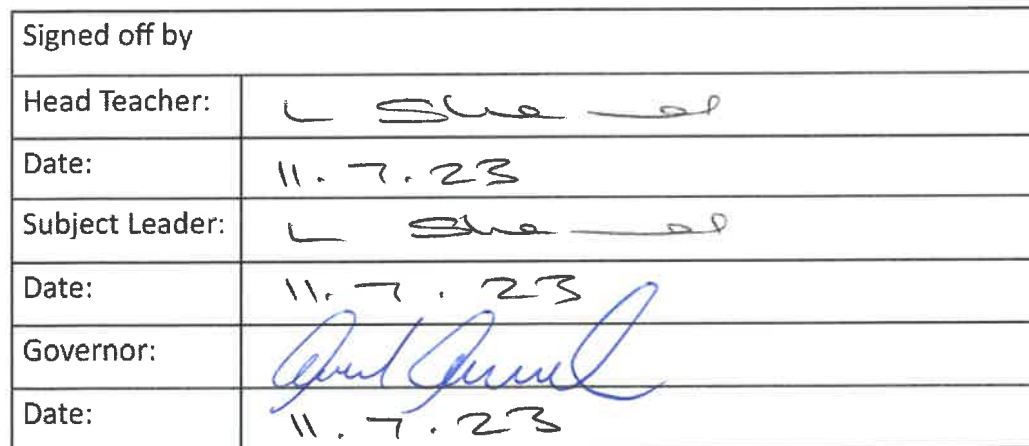 Signed off by
Head Teacher: L
Date: 11.7.23
Subject Leader: L
Date: 11.7.23
Governor:
Date: 11.7.23